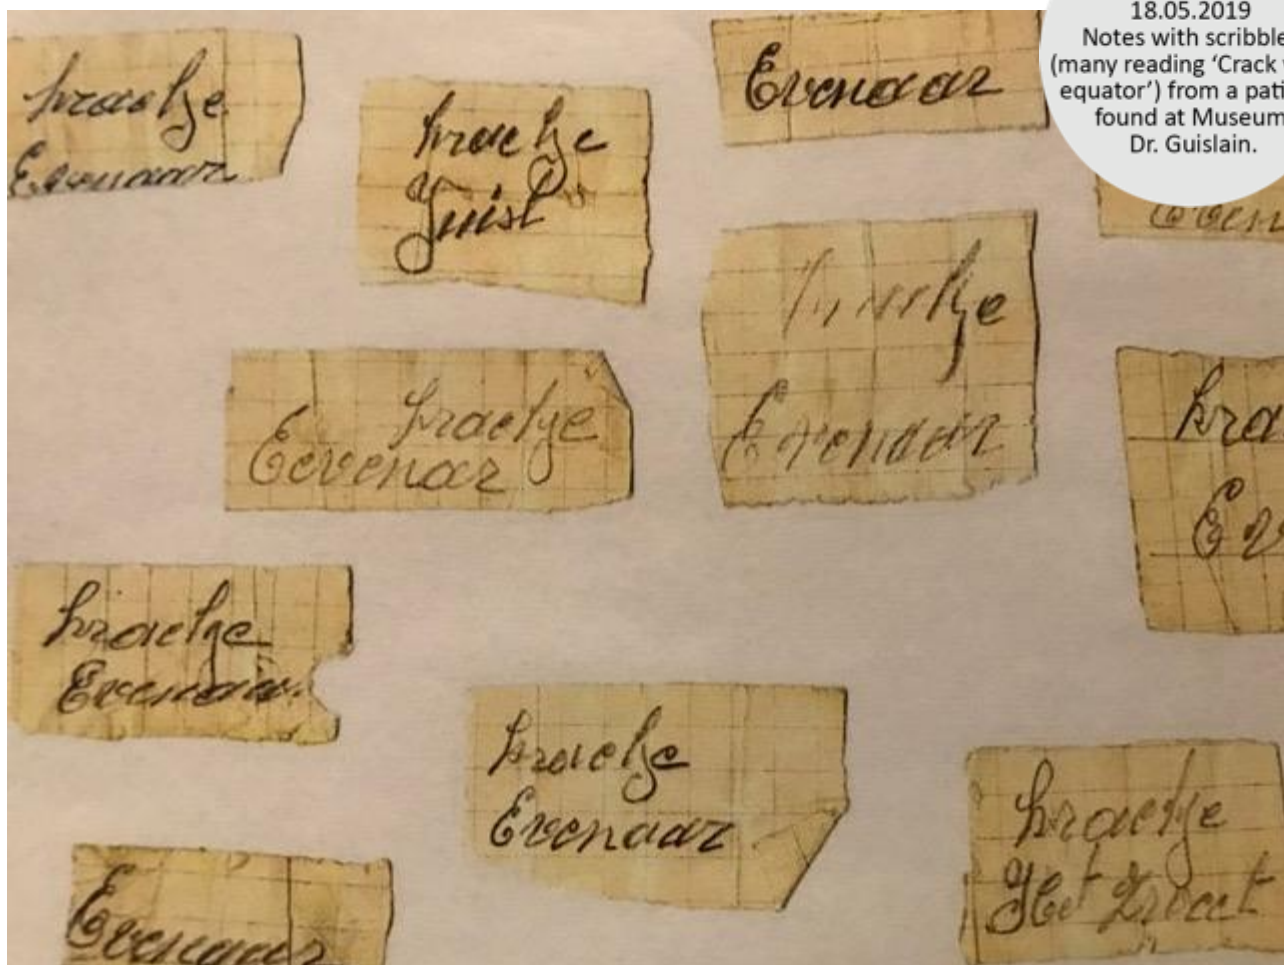 18.05.2019
Notes with scribble
(many reading ‘Crack
equator’) from a pati
found at Museum
Dr. Guislain.
kraetje
Evenaar
kraetje
Juist
Evenaar
Even
kraetje
Eevenar
kraetje
Evenaar
kra
Ev
kraetje
Evenaar
kraetje
Evenaar
kraetje
Het
Evenaar